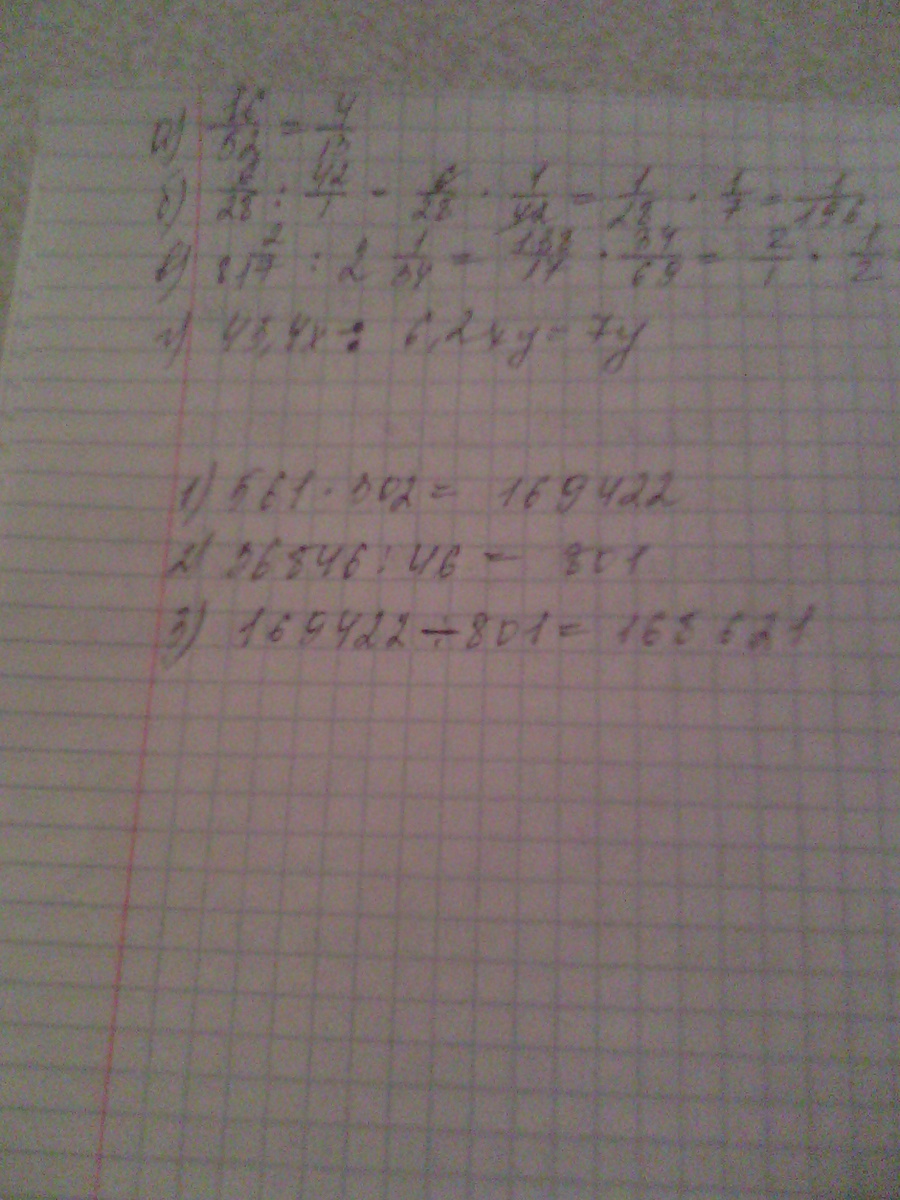 а) 16/52 = 4/13
б) 6/28 : 42/1 = 6/28 · 1/42 = 1/28 · 1/7 = 1/196
в) 8 2/17 : 2 1/34 = 138/17 · 34/69 = 2/1 · 1/2
г) 43,4x : 6,2xy = 7y
1) 561 · 302 = 169422
2) 36846 : 46 = 801
3) 169422 - 801 = 168621